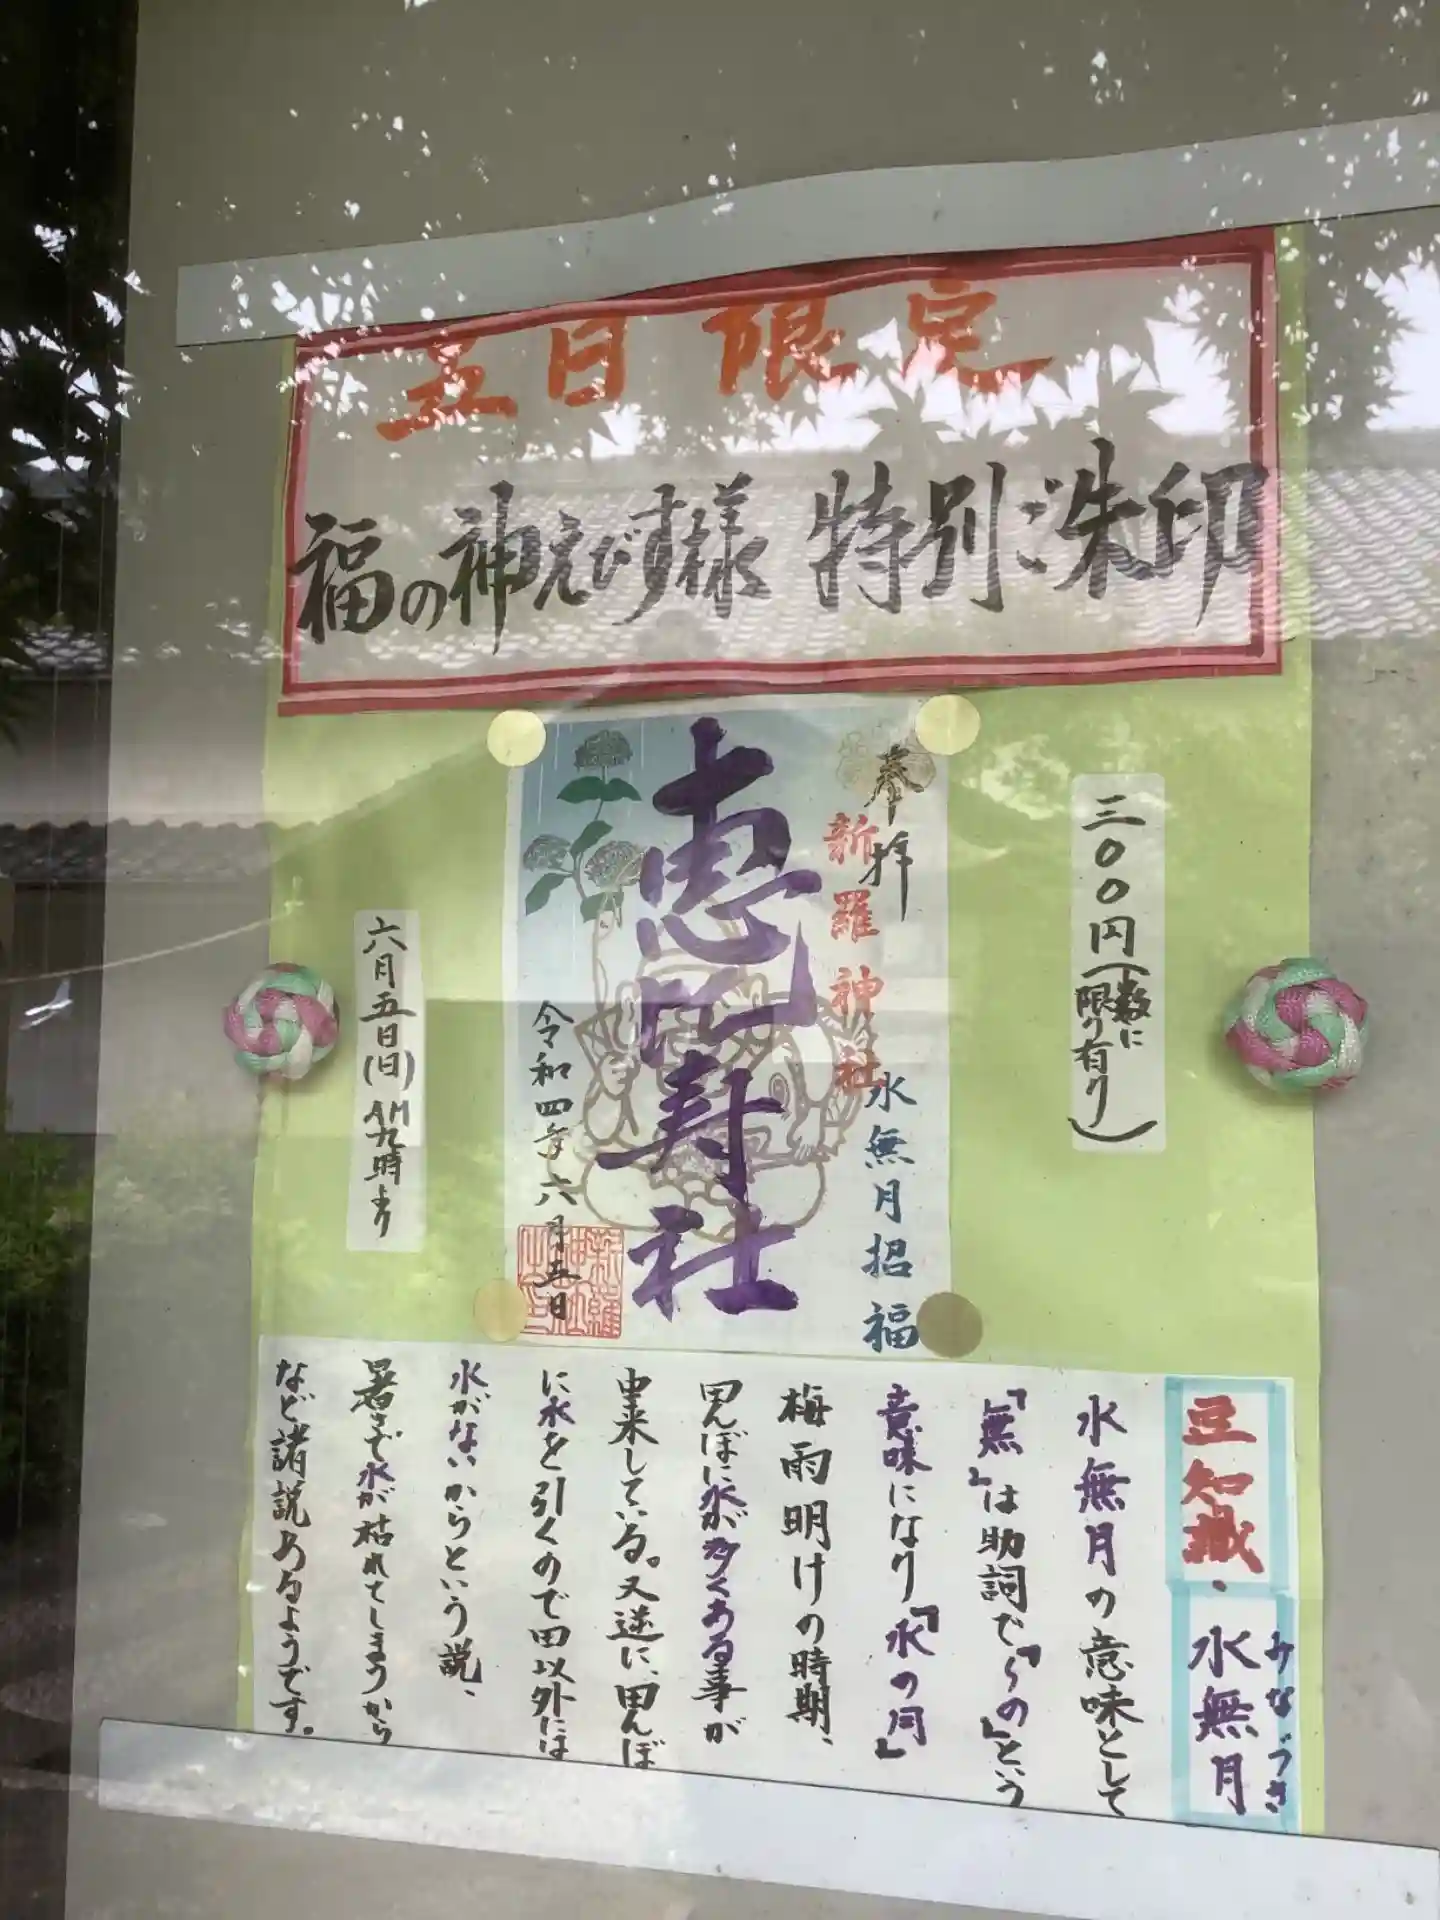 五日限定
福の神えびす様 特別ご朱印
三〇〇円(数に限り有り)
奉拝
新羅神社
水無月招福
恵比寿社
令和四年六月五日
六月五日(日)AM九時より
豆知識・水無月
みなづき
水無月の意味として
『無』は助詞で『〜の』という
意味になり『水の月』
梅雨明けの時期、
田んぼに水が多くある事が
由来している。又逆に、田んぼ
に水を引くので田以外には
水がないからという説、
暑さで水が枯れてしまうから
など諸説あるようです。